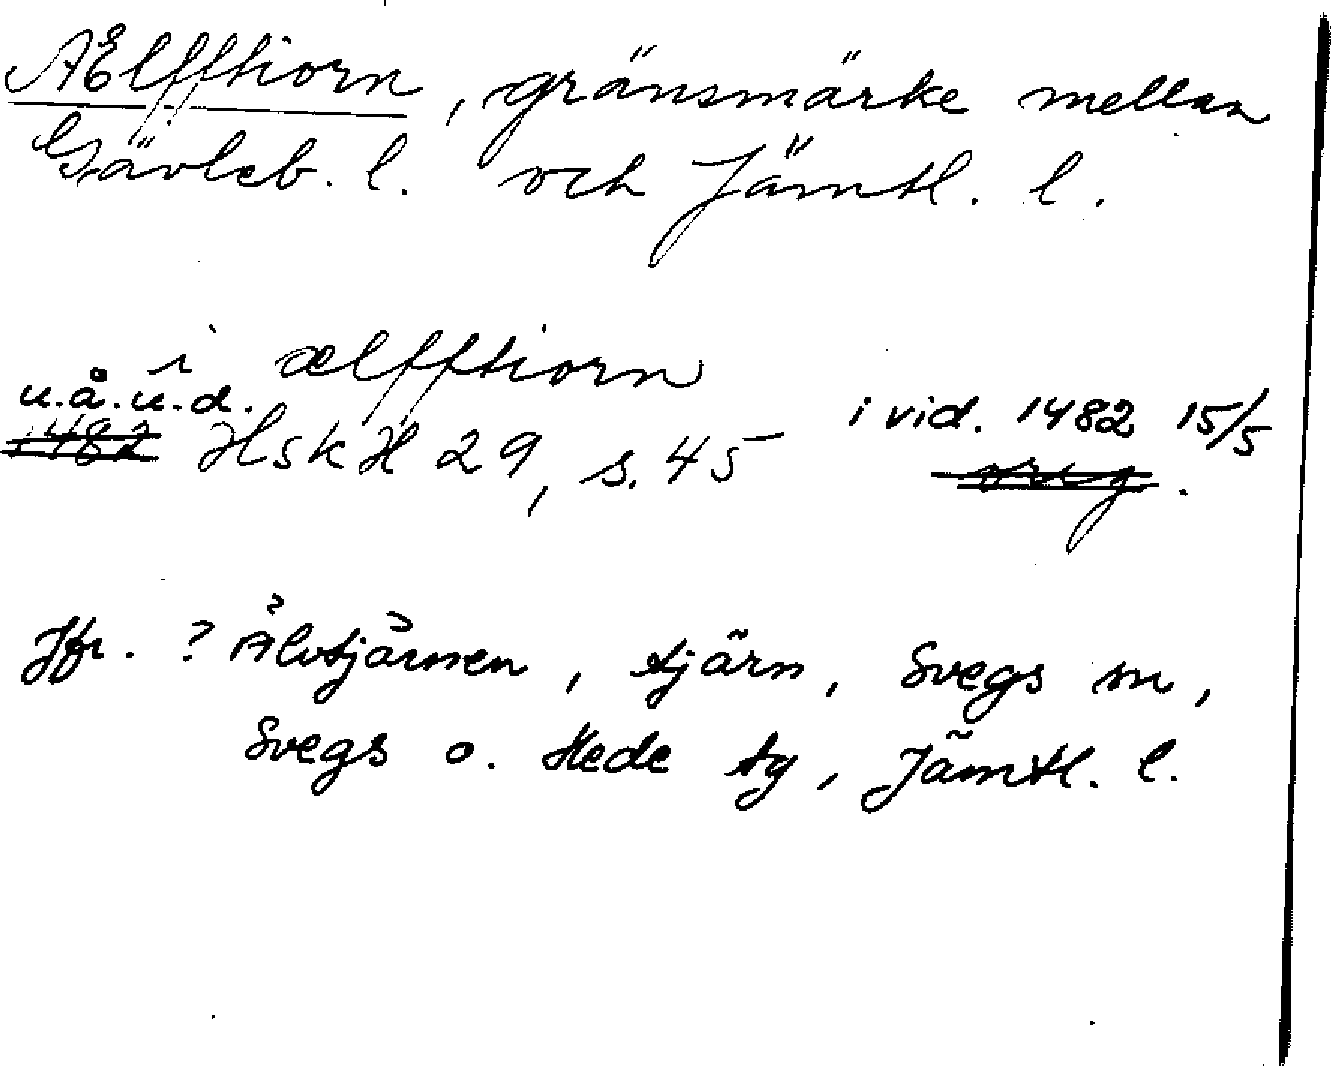 Ælfftiorn, gränsmärke mellan
Gävleb. l. och Jämtl. l.
i ælfftiorn
u.å.u.d.
1482 HskH 29, s. 45 i vid. 1482 15/5
orig.
Jfr. ? Älvtjärnen, tjärn, Svegs sn,
Svegs o. Hede tg, Jämtl. l.